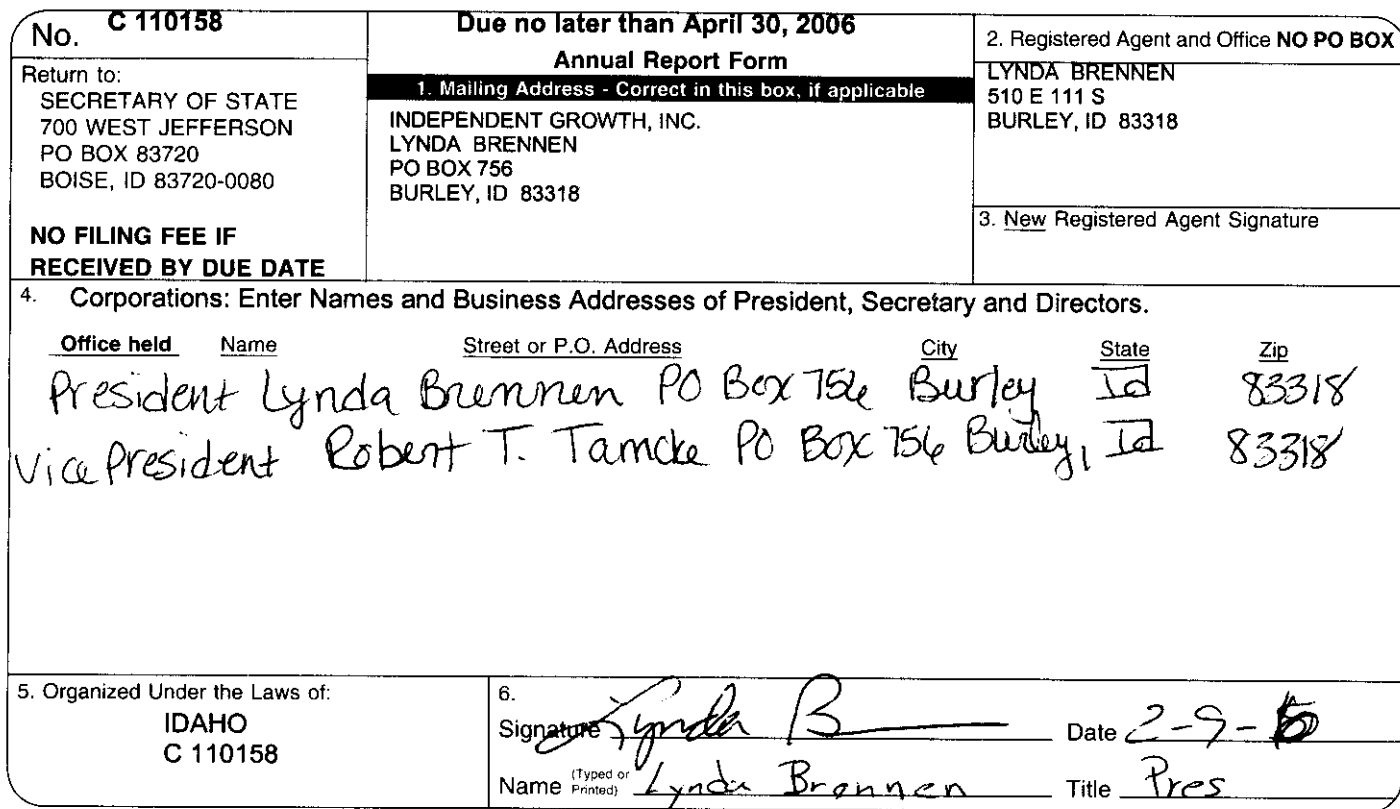 No. C 110158
Return to:
SECRETARY OF STATE
700 WEST JEFFERSON
PO BOX 83720
BOISE, ID 83720-0080
NO FILING FEE IF
RECEIVED BY DUE DATE
Due no later than April 30, 2006
Annual Report Form
1. Mailing Address - Correct in this box, if applicable
INDEPENDENT GROWTH, INC.
LYNDA BRENNEN
PO BOX 756
BURLEY, ID 83318
2. Registered Agent and Office NO PO BOX
LYNDA BRENNEN
510 E 111 S
BURLEY, ID 83318
3. New Registered Agent Signature
4. Corporations: Enter Names and Business Addresses of President, Secretary and Directors.
Office held Name Street or P.O. Address City State Zip
President Lynda Brennen PO Box 756 Burley Id 83318
Vice President Robert T. Tamcke PO Box 756 Burley, Id 83318
5. Organized Under the Laws of:
IDAHO
C 110158
6.
Signature Lynda B Date 2-9-
Name (Typed or Printed) Lynda Brennen Title Pres